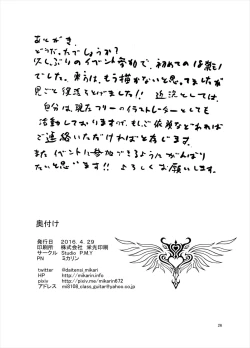 あとがき
どうだったでしょうか?
久しぶりのイベント参加で、初めての
でした。実は、もう描かないと思ってましたが
見ごと復活をとげました!! 近況としては、
自分は、現在フリーのイラストレーターとしても
活動しておりますので、もしご依頼などあれば
ご連絡いただければと存じます。
またイベントに参加できるようにがんばり
たいと思います!! よろしくお願いします。
奥付け
発行日 2016.4.29
印刷所 株式会社 栄光印刷
サークル Studio P.M.Y
PN ミカリン
twitter @daitensi_mikari
HP http://mikarin.info
pixiv http://pixiv.me/mikarin672
アドレス mi8158_class_guitar@yahoo.co.jp